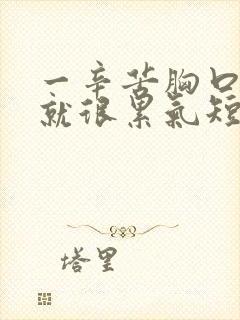 一辛苦胸口
就很累氣短
塔里